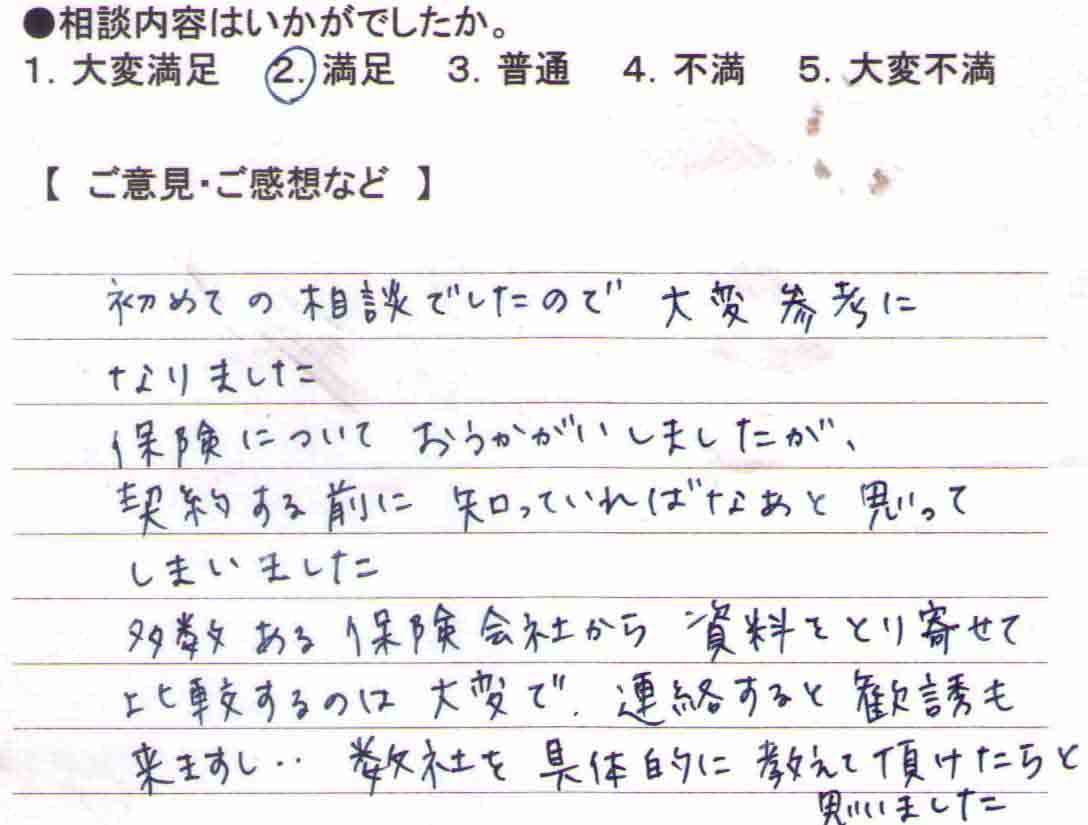 ●相談内容はいかがでしたか。
1. 大変満足 2. 満足 3. 普通 4. 不満 5. 大変不満
【 ご意見・ご感想など 】
初めての相談でしたので 大変参考に
なりました
保険について おうかがいしましたが、
契約する前に 知っていればなあと 思って
しまいました
多数ある保険会社から 資料をとり寄せて
比較するのは 大変で、連絡すると 歓誘も
来ますし‥ 数社を 具体的に 教えて頂けたらと
思いました